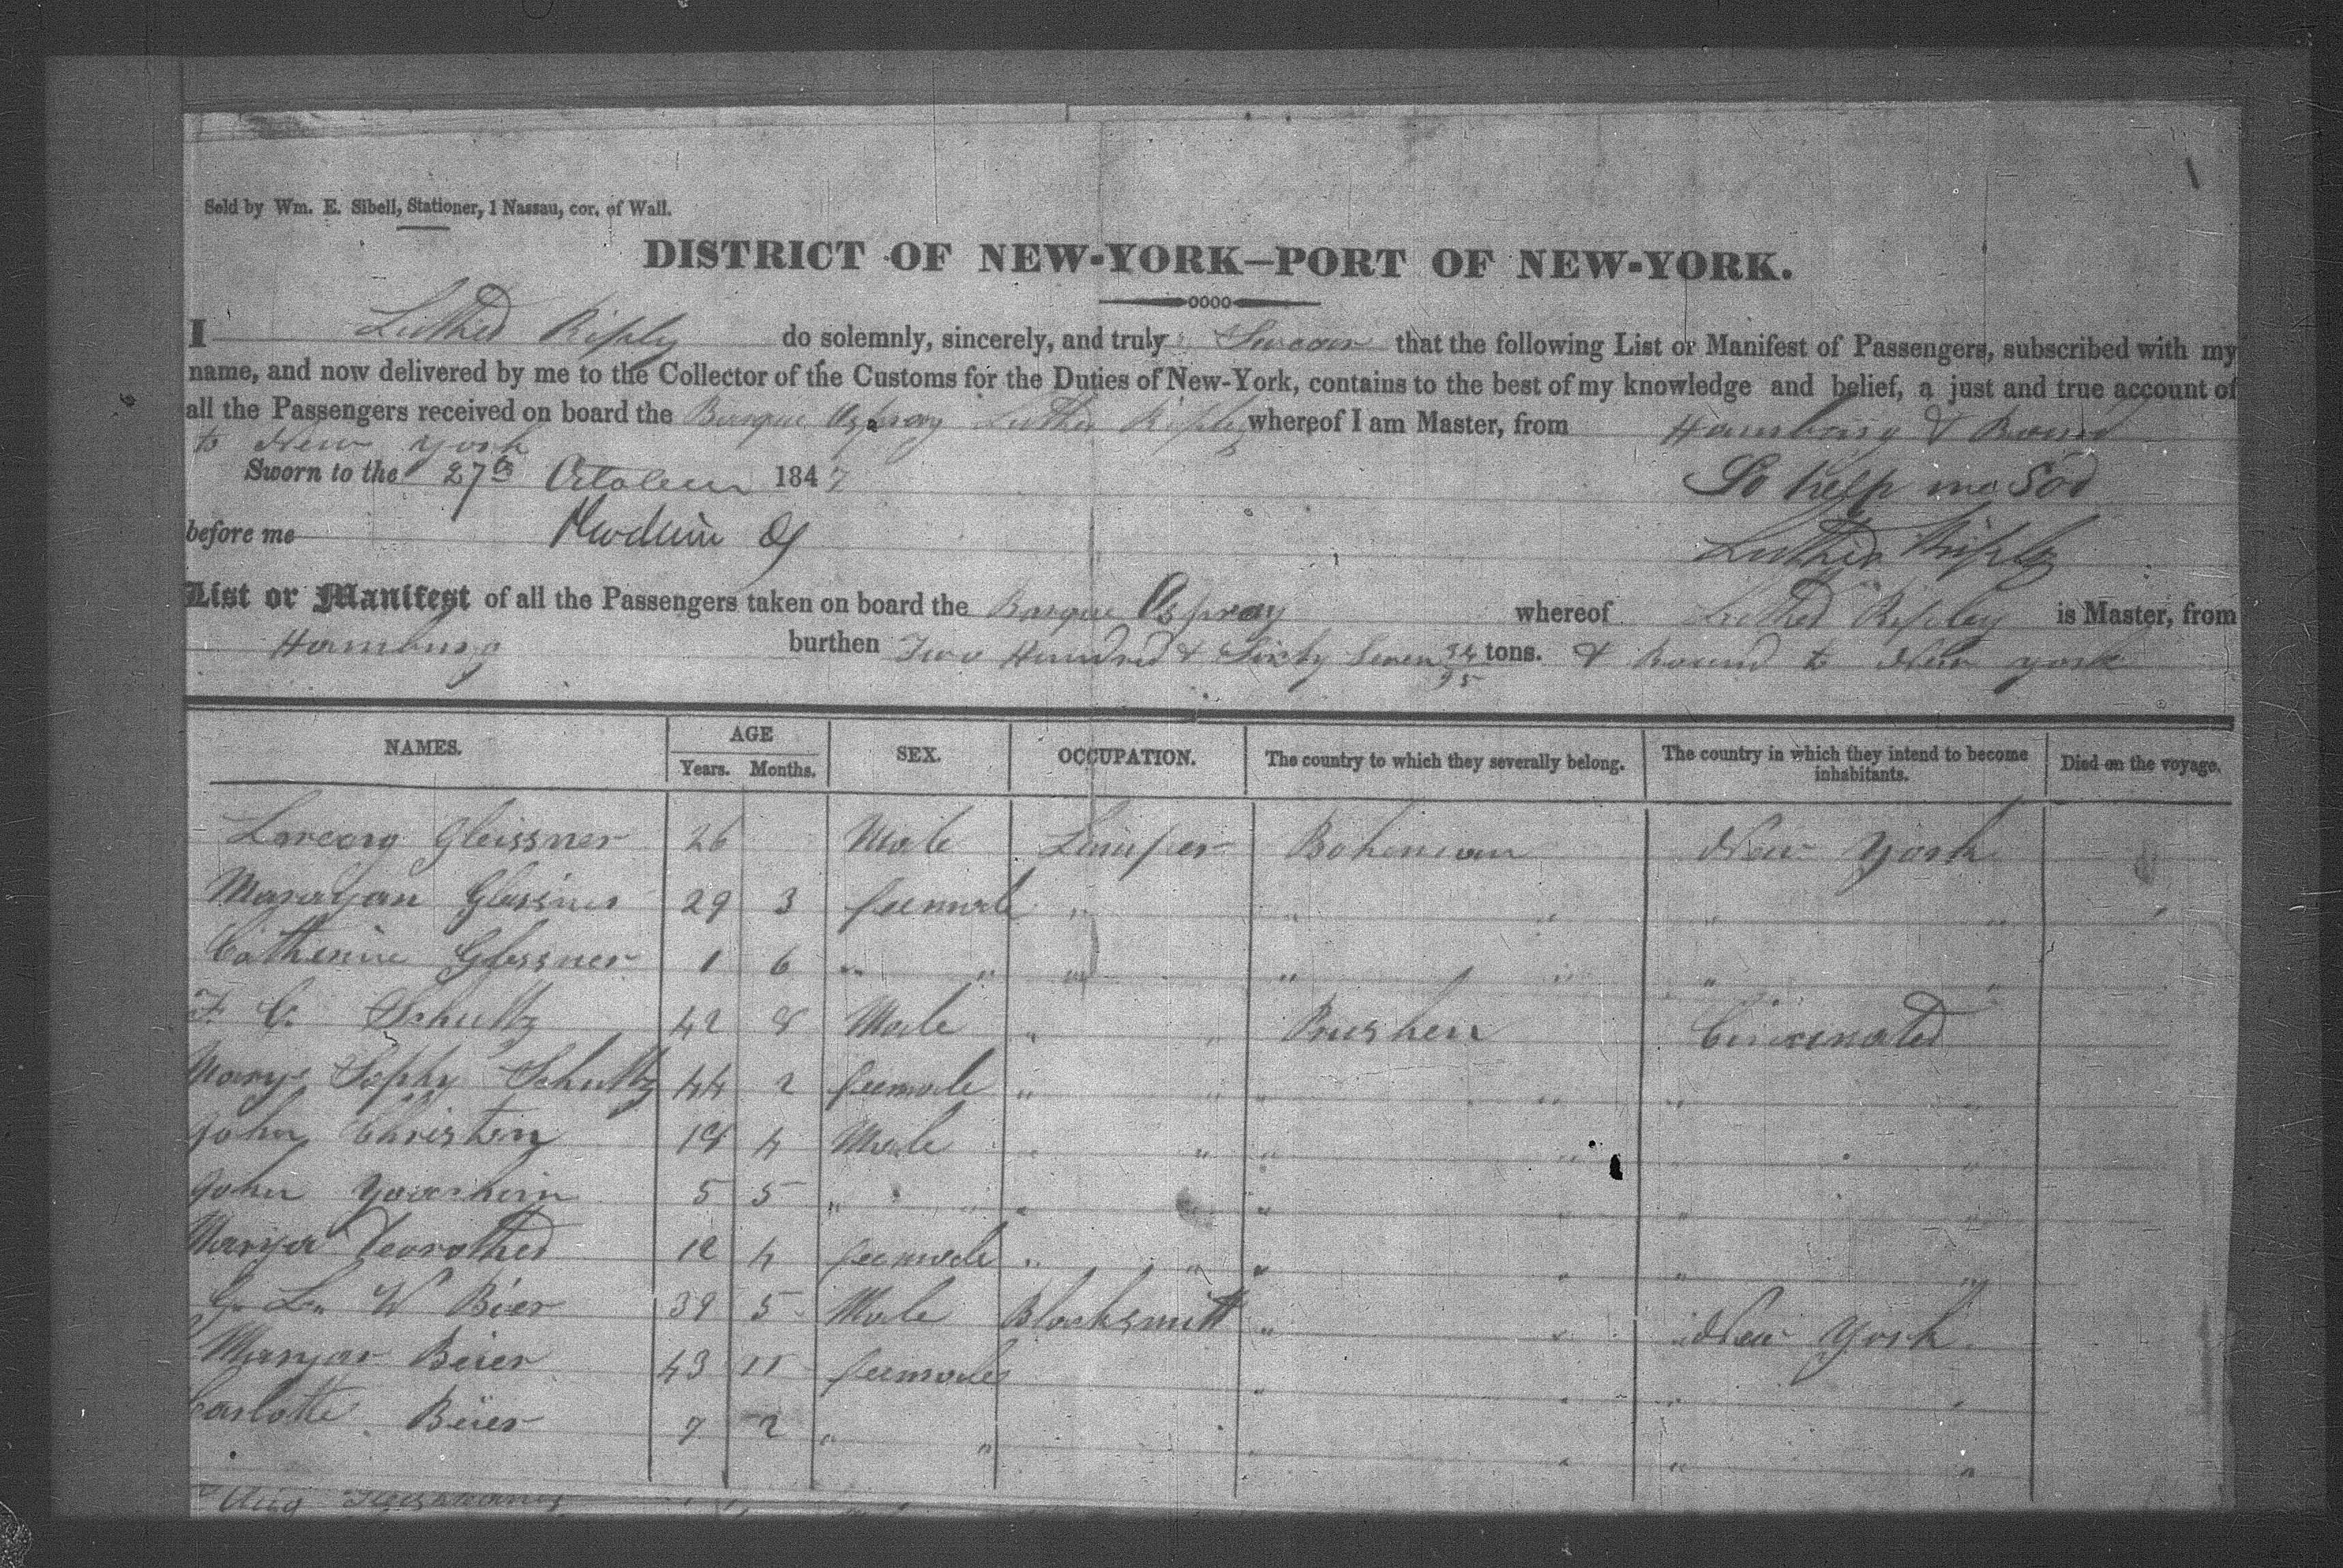 Sold by Wm. E. Sibell, Stationer, 1 Nassau, cor. of Wall.
DISTRICT OF NEW-YORK—PORT OF NEW-YORK.
I Luther Ripley do solemnly, sincerely, and truly Swear that the following List or Manifest of Passengers, subscribed with my
name, and now delivered by me to the Collector of the Customs for the Duties of New-York, contains to the best of my knowledge and belief, a just and true account of
all the Passengers received on board the Barque Ospray Luther Ripley whereof I am Master, from Hamburg & Bound
to New York
Sworn to the 27th October 1847 So help me God
before me Luther Ripley
List or Manifest of all the Passengers taken on board the Barque Ospray whereof Luther Ripley is Master, from
Hamburg burthen Two Hundred & Sixty Seven 34/95 tons. & Bound to New York
NAMES. AGE SEX. OCCUPATION. The country to which they severally belong. The country in which they intend to become inhabitants. Died on the voyage.
Years. Months.
Gleissner 26 Male Bohemian New York
Marayan Glessner 29 3 feemale " " " " "
Catherine Glessner 1 6 " " " " " " "
F. C. Schultz 42 8 Male " " Prushen Cincinated
Marye Sophy Schultz 44 2 feemale " " " " " "
John Christen 18 4 Male " " " " "
John Yoashim 5 5 " " " " " " "
Marya Dorothed 12 4 feemale " " " " " "
G. L. W Bier 39 5 Male Blacksmitt " " New York
Maryar Beier 43 11 feemale " " " "
Carlotte Beier 7 2 " " " " " "